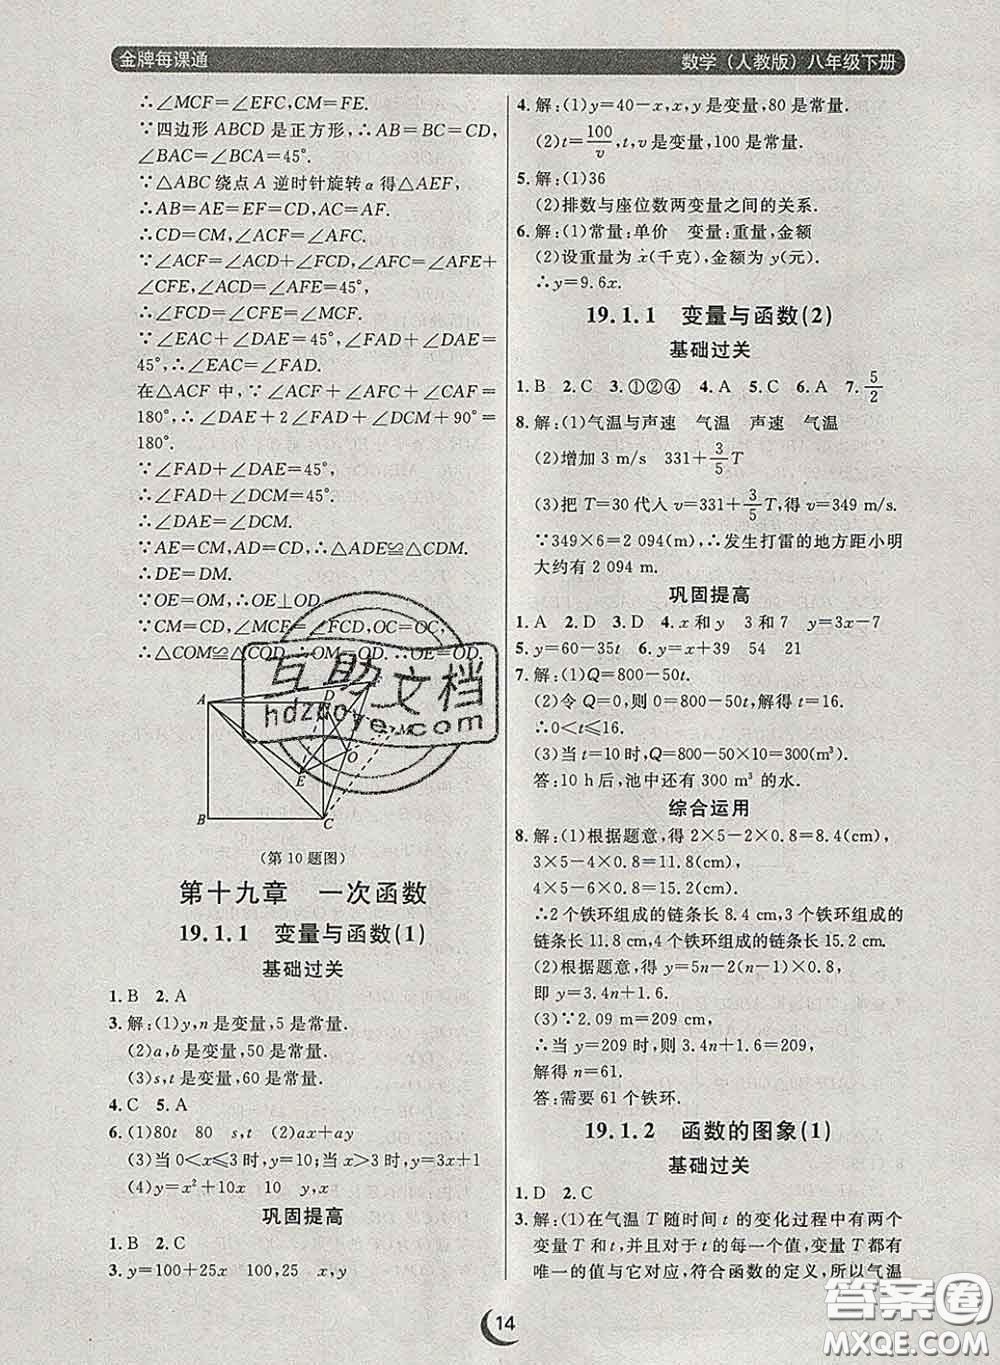 金牌每课通
数学(人教版)八年级下册
∴∠MCF=∠EFC,CM=FE.
∵四边形ABCD是正方形,∴AB=BC=CD,
∠BAC=∠BCA=45°.
∵△ABC绕点A逆时针旋转α得△AEF,
∴AB=AE=EF=CD,AC=AF.
∴CD=CM,∠ACF=∠AFC.
∵∠ACF=∠ACD+∠FCD,∠AFC=∠AFE+
∠CFE,∠ACD=∠AFE=45°,
∴∠FCD=∠CFE=∠MCF.
∵∠EAC+∠DAE=45°,∠FAD+∠DAE=
45°,∴∠EAC=∠FAD.
在△ACF中,∵∠ACF+∠AFC+∠CAF=
180°,∴∠DAE+2∠FAD+∠DCM+90°=
180°.
∵∠FAD+∠DAE=45°,
∴∠FAD+∠DCM=45°.
∴∠DAE=∠DCM.
∵AE=CM,AD=CD,∴△ADE≌△CDM.
∴DE=DM.
∵OE=OM,∴OE⊥OD.
∵CM=CD,∠MCF=∠FCD,OC=OC,
∴△COM≌△COD.∴OM=OD.∴OE=OD.
A
D
F
M
O
E
B
C
(第10题图)
第十九章 一次函数
19.1.1 变量与函数(1)
基础过关
1.B 2.A
3.解:(1)y,n是变量,5是常量.
(2)a,b是变量,50是常量.
(3)s,t是变量,60是常量.
4.C 5.A
6.(1)80t 80 s,t (2)ax+ay
(3)当0<x≤3时,y=10;当x>3时,y=3x+1
(4)y=x²+10x y,x
巩固提高
1.B 2.C
3.y=100+25x 100,25 x,y
4.解:(1)y=40-x,x,y是变量,80是常量.
(2)t=100/v,t,v是变量,100是常量.
5.解:(1)36
(2)排数与座位数两变量之间的关系.
6.解:(1)常量:单价 变量:重量,金额
(2)设重量为x(千克),金额为y(元).
∴y=9.6x.
19.1.1 变量与函数(2)
基础过关
1.B 2.C 3.①②④ 4.A 5.C 6.A 7.5/2
8.解:(1)气温与声速 气温 声速 气温
(2)增加3 m/s 331+3/5T
(3)把T=30代人v=331+3/5T,得v=349 m/s.
∵349×6=2 094(m),∴发生打雷的地方距小明
大约有2 094 m.
巩固提高
1.A 2.D 3.D 4.x和y 3和7 y=3x-7
5.y=60-35t 6.y=x+39 54 21
7.解:(1)Q=800-50t.
(2)令Q=0,则0=800-50t,解得t=16.
∴0<t≤16.
(3)当t=10时,Q=800-50×10=300(m³).
答:10 h后,池中还有300 m³的水.
综合运用
8.解:(1)根据题意,得2×5-2×0.8=8.4(cm),
3×5-4×0.8=11.8(cm),
4×5-6×0.8=15.2(cm).
∴2个铁环组成的链条长8.4 cm,3个铁环组成的
链条长11.8 cm,4个铁环组成的链条长15.2 cm.
(2)根据题意,得y=5n-2(n-1)×0.8,
即y=3.4n+1.6.
(3)∵2.09 m=209 cm,
∴当y=209时,则3.4n+1.6=209,
解得n=61.
答:需要61个铁环.
19.1.2 函数的图象(1)
基础过关
1.D 2.C
3.解:(1)在气温T随时间t的变化过程中有两个
变量T和t,并且对于t的每一个值,变量T都有
唯一的值与它对应,符合函数的定义,所以气温
14
互助文档
hdzuoye.com
答案圈
MXQE.COM